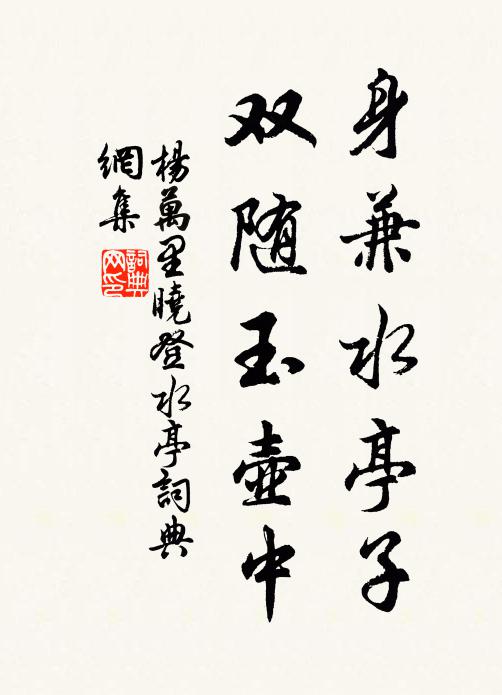 身兼水亭子
双随玉壶中
楊萬里曉登水亭詞典
網集
詞典
网印